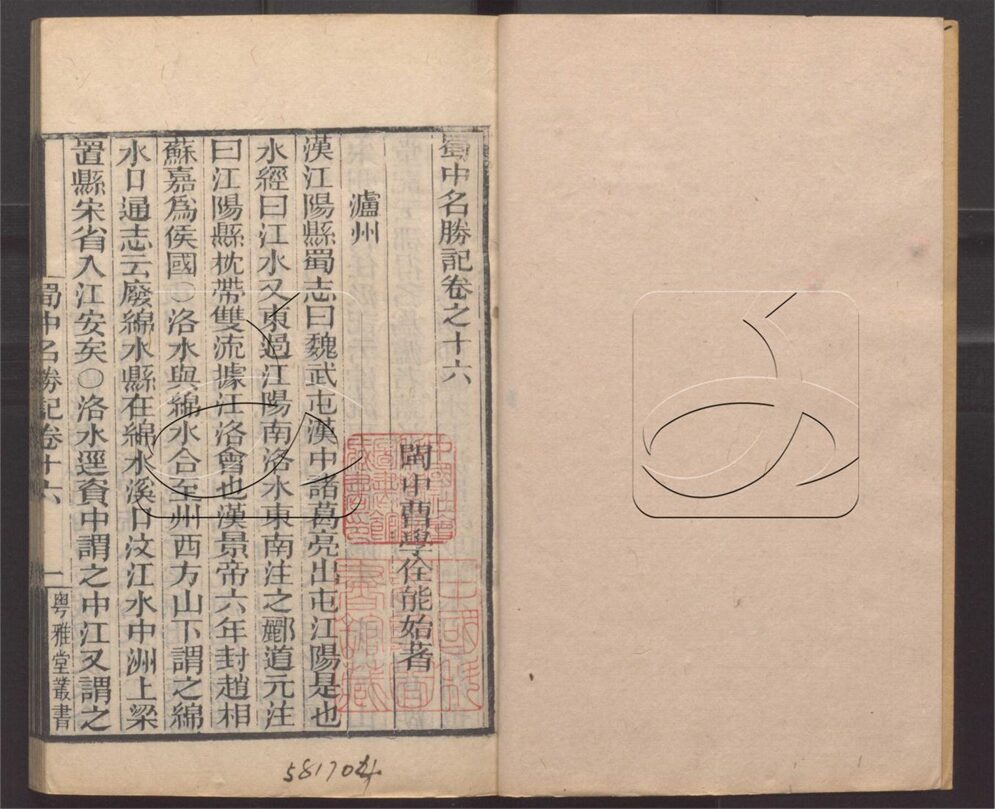 蜀中名勝記卷之十六
閩中曹學佺能始著
瀘州
漢江陽縣蜀志曰魏武屯漢中諸葛亮出屯江陽是也
水經曰江水又東過江陽南洛水東南注之酈道元注
曰江陽縣枕帶雙流據江洛會也漢景帝六年封趙相
蘇嘉為侯國〇洛水與綿水合至州西方山下謂之綿
水口通志云廢綿水縣在綿水溪口汶江水中洲上梁
置縣宋省入江安矣〇洛水逕資中謂之中江又謂之
蜀中名勝記卷十六
一
粵雅堂叢書
581704